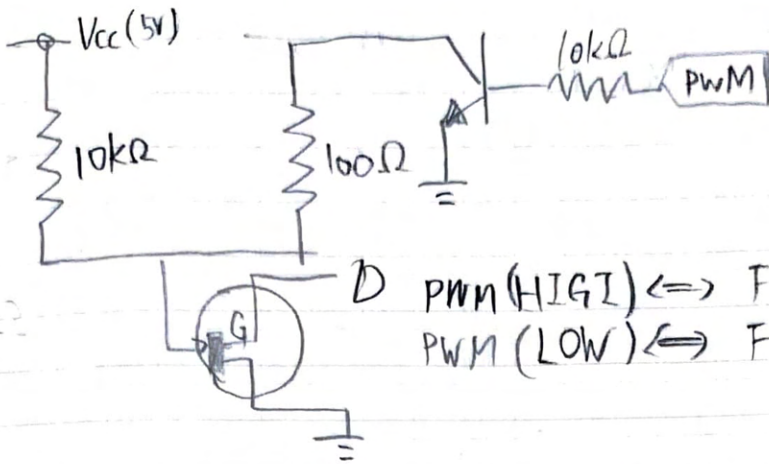 Vcc (5V)
10kΩ
PWM
10kΩ
100Ω
D
G
PWM (HIGI) <=> F
PWM (LOW) <=> F